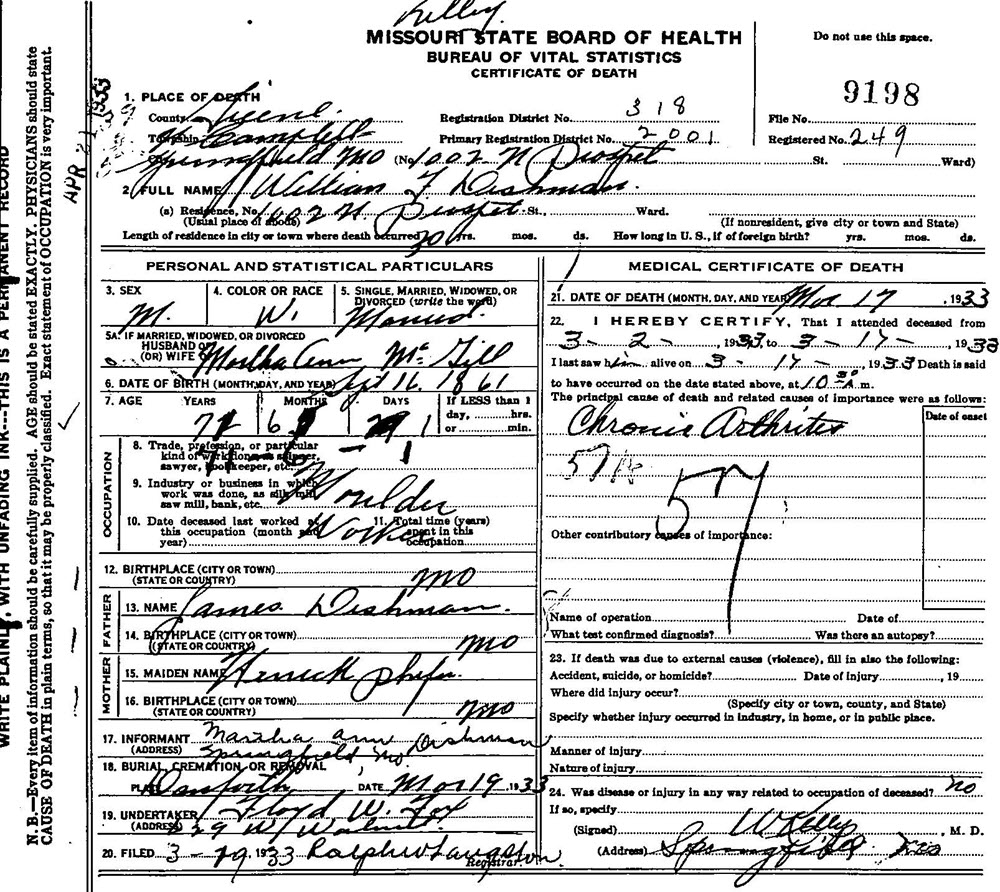 Kelley
MISSOURI STATE BOARD OF HEALTH
BUREAU OF VITAL STATISTICS
CERTIFICATE OF DEATH
Do not use this space.
9198
1. PLACE OF DEATH
County Greene Registration District No. 318 File No.
Township Campbell Primary Registration District No. 2001 Registered No. 249
City Springfield Mo (No. 1002 N Prospet St. Ward)
2. FULL NAME William F. Dishman.
(a) Residence, No. 1002 N. Prospet St., Ward. (If nonresident, give city or town and State)
(Usual place of abode)
Length of residence in city or town where death occurred 30 yrs. mos. ds. How long in U. S., if of foreign birth? yrs. mos. ds.
PERSONAL AND STATISTICAL PARTICULARS
3. SEX M. 4. COLOR OR RACE W. 5. SINGLE, MARRIED, WIDOWED, OR DIVORCED (write the word) Married.
5A. IF MARRIED, WIDOWED, OR DIVORCED
HUSBAND OF
(OR) WIFE OF Martha Ann McGill
6. DATE OF BIRTH (MONTH, DAY, AND YEAR) Sept 16. 1861
7. AGE YEARS MONTHS DAYS If LESS than 1 day, hrs. or min.
71 6 1
OCCUPATION
8. Trade, profession, or particular
kind of work done, as spinner,
sawyer, bookkeeper, etc.
9. Industry or business in which
work was done, as silk mill,
saw mill, bank, etc. Moulder
10. Date deceased last worked at
this occupation (month and
year) Worker
11. Total time (years)
spent in this
occupation
12. BIRTHPLACE (CITY OR TOWN)
(STATE OR COUNTRY) Mo
FATHER
13. NAME James Dishman.
14. BIRTHPLACE (CITY OR TOWN)
(STATE OR COUNTRY) Mo
MOTHER
15. MAIDEN NAME
16. BIRTHPLACE (CITY OR TOWN)
(STATE OR COUNTRY) Mo
17. INFORMANT Martha Ann Dishman
(ADDRESS) Springfield Mo
18. BURIAL, CREMATION, OR REMOVAL
PLACE Danforth DATE Mar 19, 1933
19. UNDERTAKER Floyd W. Fox
(ADDRESS) W Walnut
20. FILED 3-19, 1933 Ralph W Langston
Registrar.
MEDICAL CERTIFICATE OF DEATH
21. DATE OF DEATH (MONTH, DAY, AND YEAR) Mar 17, 1933
22. I HEREBY CERTIFY, That I attended deceased from
3-2-, 1933, to 3-17-, 1933
I last saw him alive on 3-17-, 1933 Death is said
to have occurred on the date stated above, at 10 30 A. m.
The principal cause of death and related causes of importance were as follows:
Date of onset
Chronic Arthrites
57
Other contributory causes of importance:
Name of operation Date of
What test confirmed diagnosis? Was there an autopsy?
23. If death was due to external causes (violence), fill in also the following:
Accident, suicide, or homicide? Date of injury, 19
Where did injury occur?
(Specify city or town, county, and State)
Specify whether injury occurred in industry, in home, or in public place.
Manner of injury
Nature of injury
24. Was disease or injury in any way related to occupation of deceased? no
If so, specify
(Signed) W Kelley, M. D.
(Address) Springfield Mo
WRITE PLAINLY, WITH UNFADING INK---THIS IS A PERMANENT RECORD
N. B.—Every item of information should be carefully supplied. AGE should be stated EXACTLY. PHYSICIANS should state
CAUSE OF DEATH in plain terms, so that it may be properly classified. Exact statement of OCCUPATION is very important.
APR 21 1933